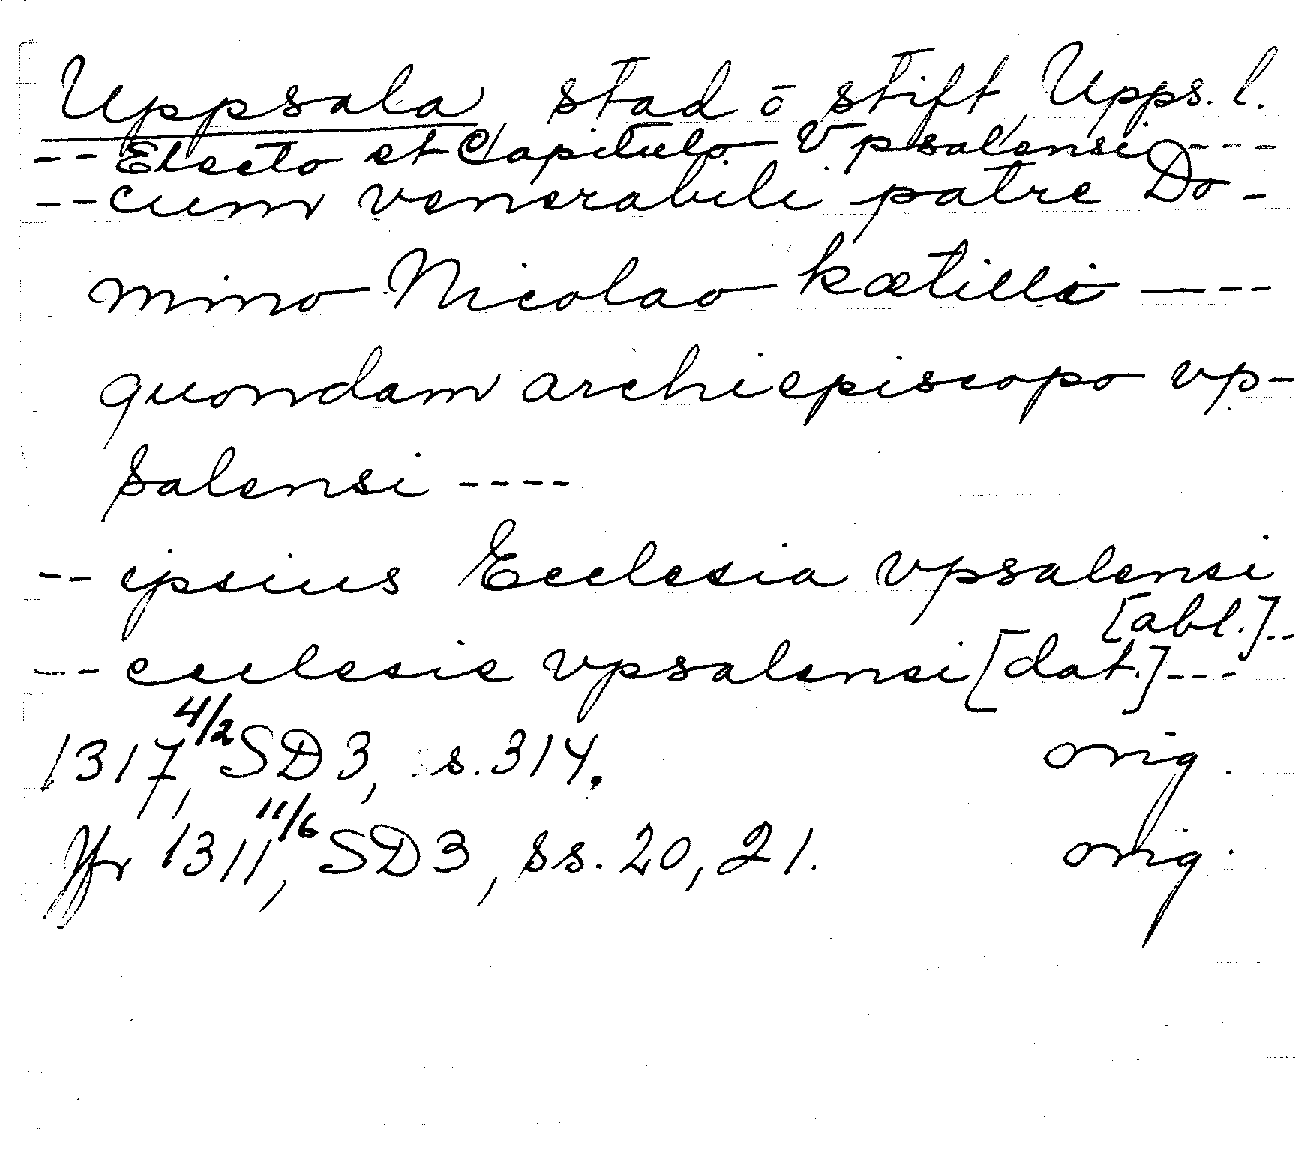 Uppsala, stad o stift, Upps. l.
-- Electo et Capitulo Vpsalensi ---
-- cum venerabili patre Do-
mino Nicolao kætilli ----
quondam archiepiscopo vp-
salensi ----
-- ipsius Ecclesia vpsalensi
[abl.]--
--- ecclesie vpsalensi [dat.] ---
1317 4/2, SD 3, s. 314. orig.
Jfr 1311 11/6, SD 3, ss. 20, 21. orig.